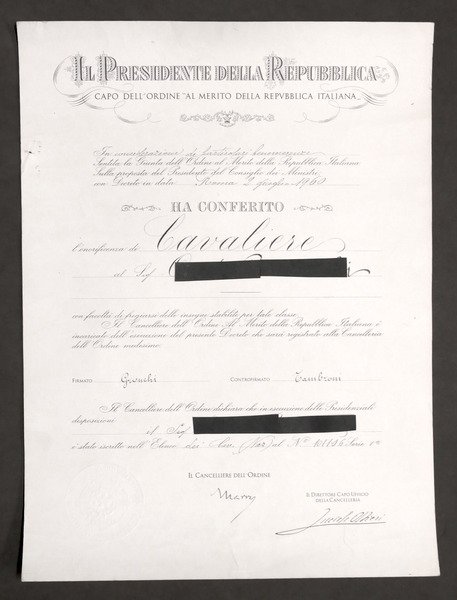 IL PRESIDENTE DELLA REPUBBLICA
CAPO DELL'ORDINE "AL MERITO DELLA REPVBBLICA ITALIANA"
In considerazione di particolari benemerenze
Sentita la Giunta dell'Ordine al Merito della Repubblica Italiana
Sulla proposta del Presidente del Consiglio dei Ministri
con Decreto in data Roma 2 giugno 1960
HA CONFERITO
l'onorificenza di Cavaliere
al Sig.
con facoltà di fregiarsi delle insegne stabilite per tale classe
Il Cancelliere dell'Ordine Al Merito della Repubblica Italiana è
incaricato dell'esecuzione del presente Decreto che sarà registrato alla Cancelleria
dell'Ordine medesimo.
FIRMATO Gronchi CONTROFIRMATO Tambroni
Il Cancelliere dell'Ordine dichiara che in esecuzione delle Presidenziali
disposizioni il Sig
è stato iscritto nell'Elenco dei Cav. (Naz) al N.°
IL CANCELLIERE DELL'ORDINE
IL DIRETTORE CAPO UFFICIO
DELLA CANCELLERIA